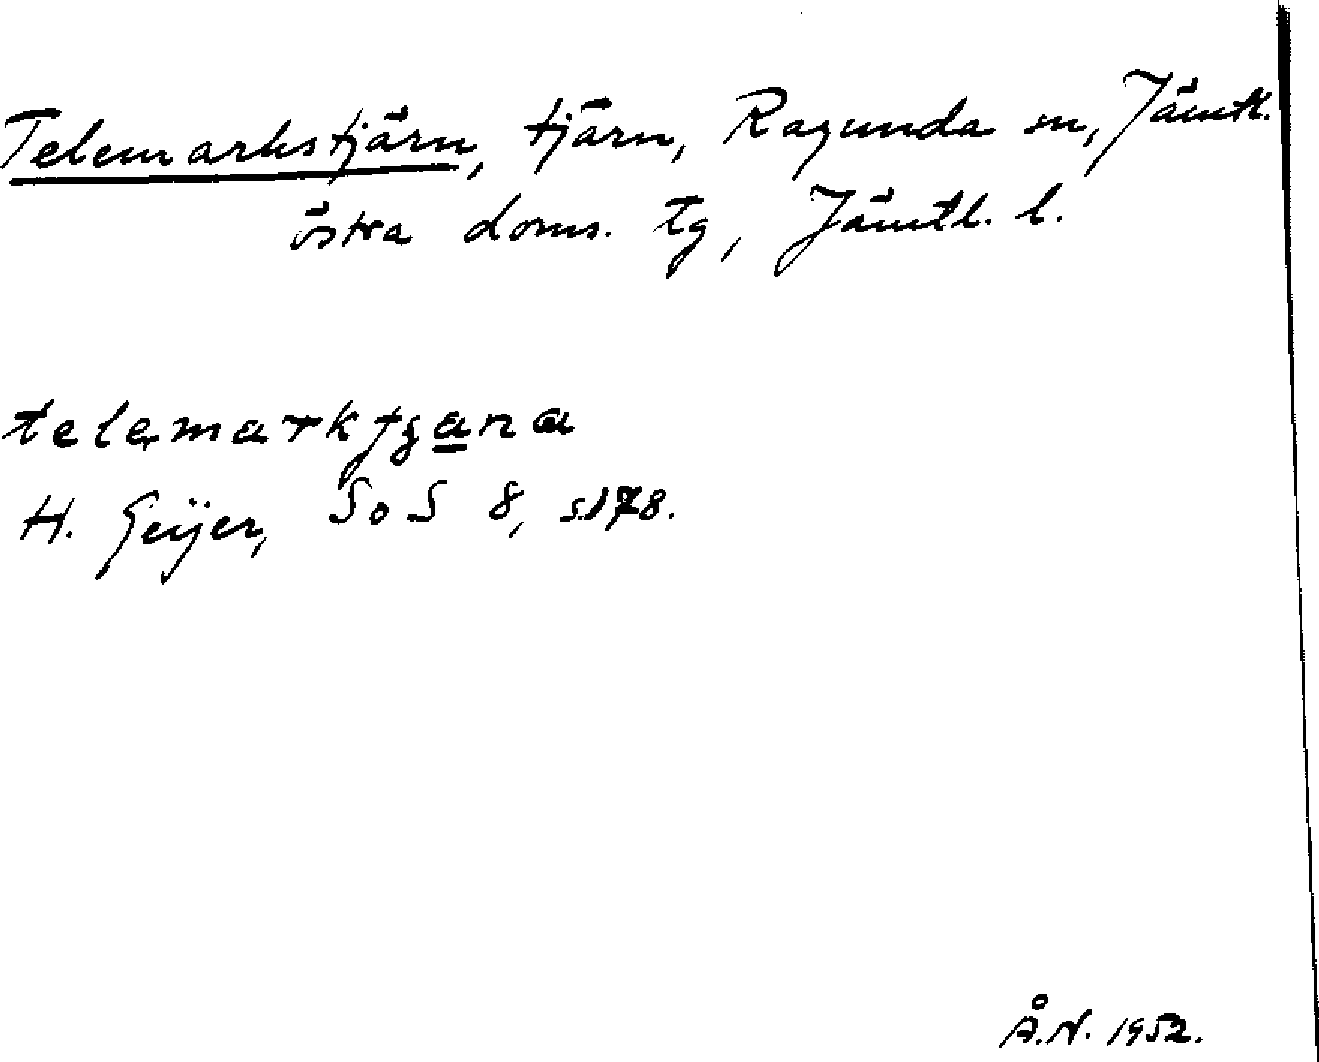 Telemarkstjärn, tjärn, Ragunda sn, Jämtl.
östra doms. tg, Jämtl. l.
H. Geijer, SoS 8, s.178.
Å.N. 1952.